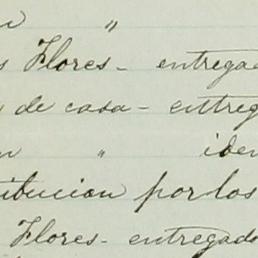 n "
s Flores - entregad
de casa - entreg
n " iden
ibucion por los
Flores - entregado